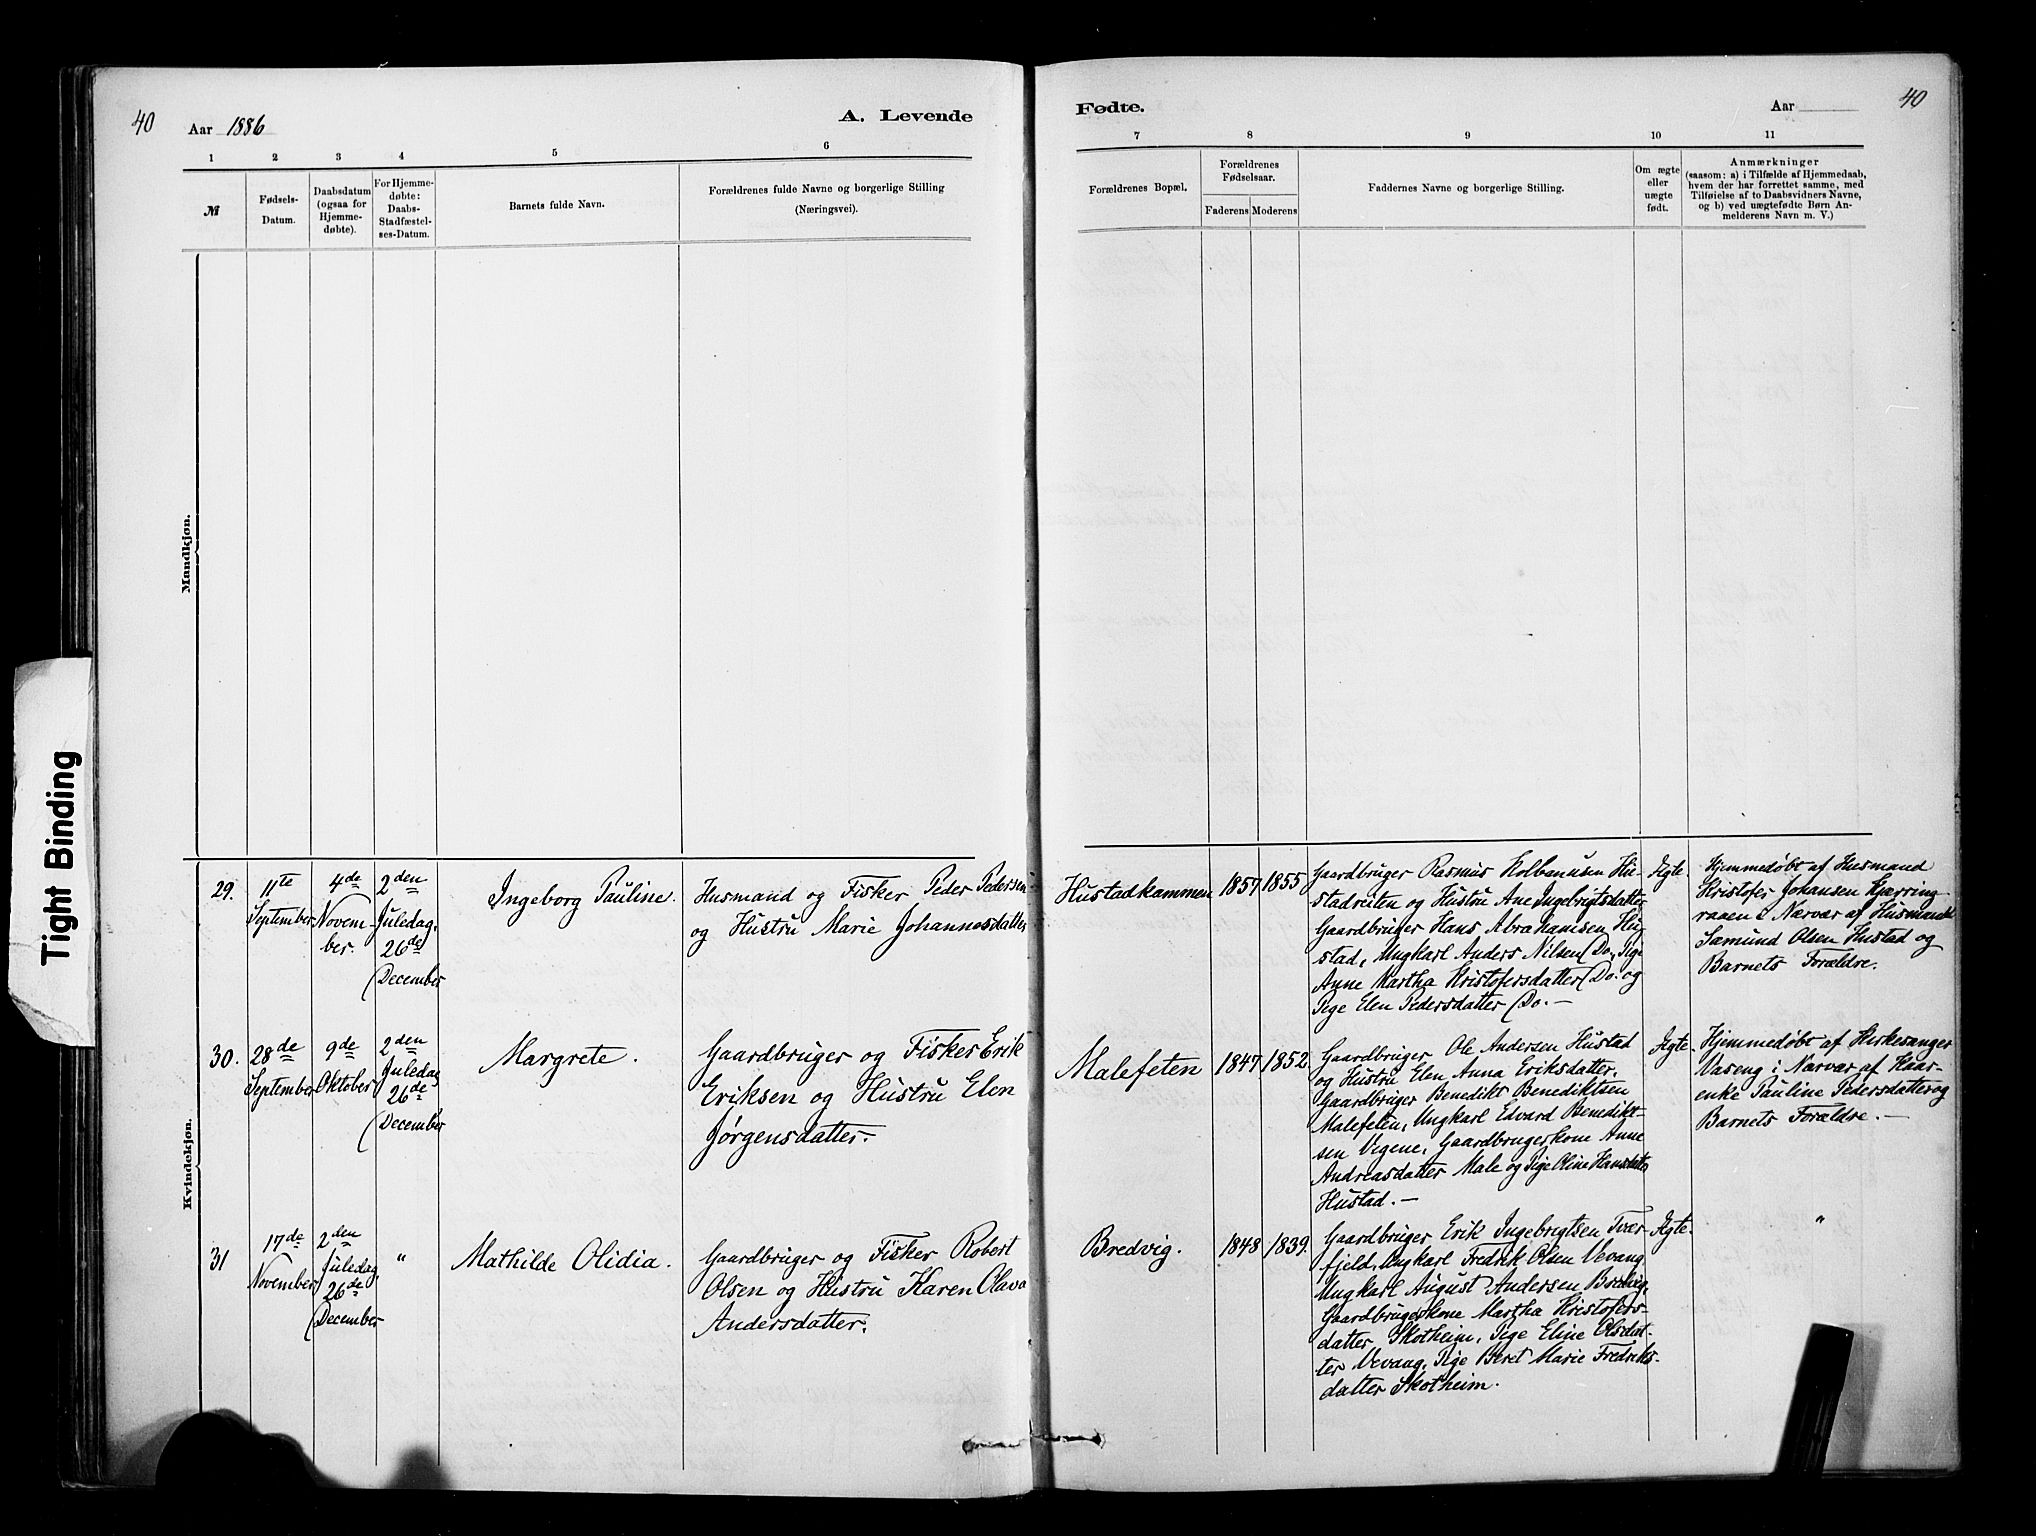 40
Aar 1886
A. Levende
1 2 3 4 5 6
№
Fødsels-
Datum.
Daabsdatum
(ogsaa for
Hjemme-
døbte).
For Hjemme-
døbte:
Daabs-
Stadfæstel-
ses-Datum.
Barnets fulde Navn.
Forældrenes fulde Navne og borgerlige Stilling
(Næringsvei).
Mandkjøn.
Kvindekjøn.
29.
11te
September
4de
Novem-
ber.
2den
Juledag,
26de
December
Ingeborg Pauline.
Husmand og Fisker Peder Pedersen
og Hustru Marie Johannesdatter
30.
28de
September
9de
Oktober
2den
Juledag
26de
December
Margrete.
Gaardbruger og Fisker Erik
Eriksen og Hustru Elen
Jørgensdatter.-
31
17de
November
2den
Juledag,
26de
December
"
Mathilde Olidia.
Gaardbruger og Fisker Robert
Olsen og Hustru Karen Olava
Andersdatter.
Fødte.
Aar
40
7 8 9 10 11
Forældrenes Bopæl.
Forældrenes
Fødselsaar.
Faderens Moderens
Faddernes Navne og borgerlige Stilling.
Om ægte
eller
uægte
født.
Anmærkninger
(saasom: a) i Tilfælde af Hjemmedaab,
hvem der har forrettet samme, med
Tilføielse af to Daabsvidners Navne,
og b) ved uægtefødte Børn An-
melderens Navn m. V.)
Hustadkammen
1857
1855
Gaardbruger Rasmus Kolbanusen Hu-
stadruten og Hustru Ane Ingebrigtsdatter
Gaardbruger Hans Abrahamsen Hu-
stad, Ungkarl Anders Nilsen Do., Pige
Anne Martha Kristofersdatter Do. og
Pige Elen Pedersdatter Do.-
Ægte
Hjemmedøbt af Husmand
Kristofer Johansen Kjærring-
raaen i Nærvær af Husmand
Samund Olsen Hustad og
Barnets Forældre.
Malefeten
1847
1852
Gaardbruger Ole Andersen Hustad
og Hustru Elen Anna Eriksdatter,
Gaardbruger Benedikt Benediktsen
Malefeten, Ungkarl Edvard Benedikt-
sen Vegene, Gaardbrugerkone Anne
Andreasdatter Male og Pige Oline Hansdatter
Hustad.-
Ægte
Hjemmedøbt af Kirkesanger
Vaseng i Nærvær af Kaar-
enke Pauline Pedersdatter og
Barnets Forældre.-
Bredvig.
1848
1839.
Gaardbruger Erik Ingebrigtsen Tvær-
fjeld, Ungkarl Fredrik Olsen Vevang
Ungkarl August Andersen Bredvig,
Gaardbrugerkone Martha Kristofers-
datter Skotheim, Pige Eline Olsdat-
ter Vevang, Pige Beret Marie Fredriks-
datter Skotheim.
Ægte.
"
Tight Binding